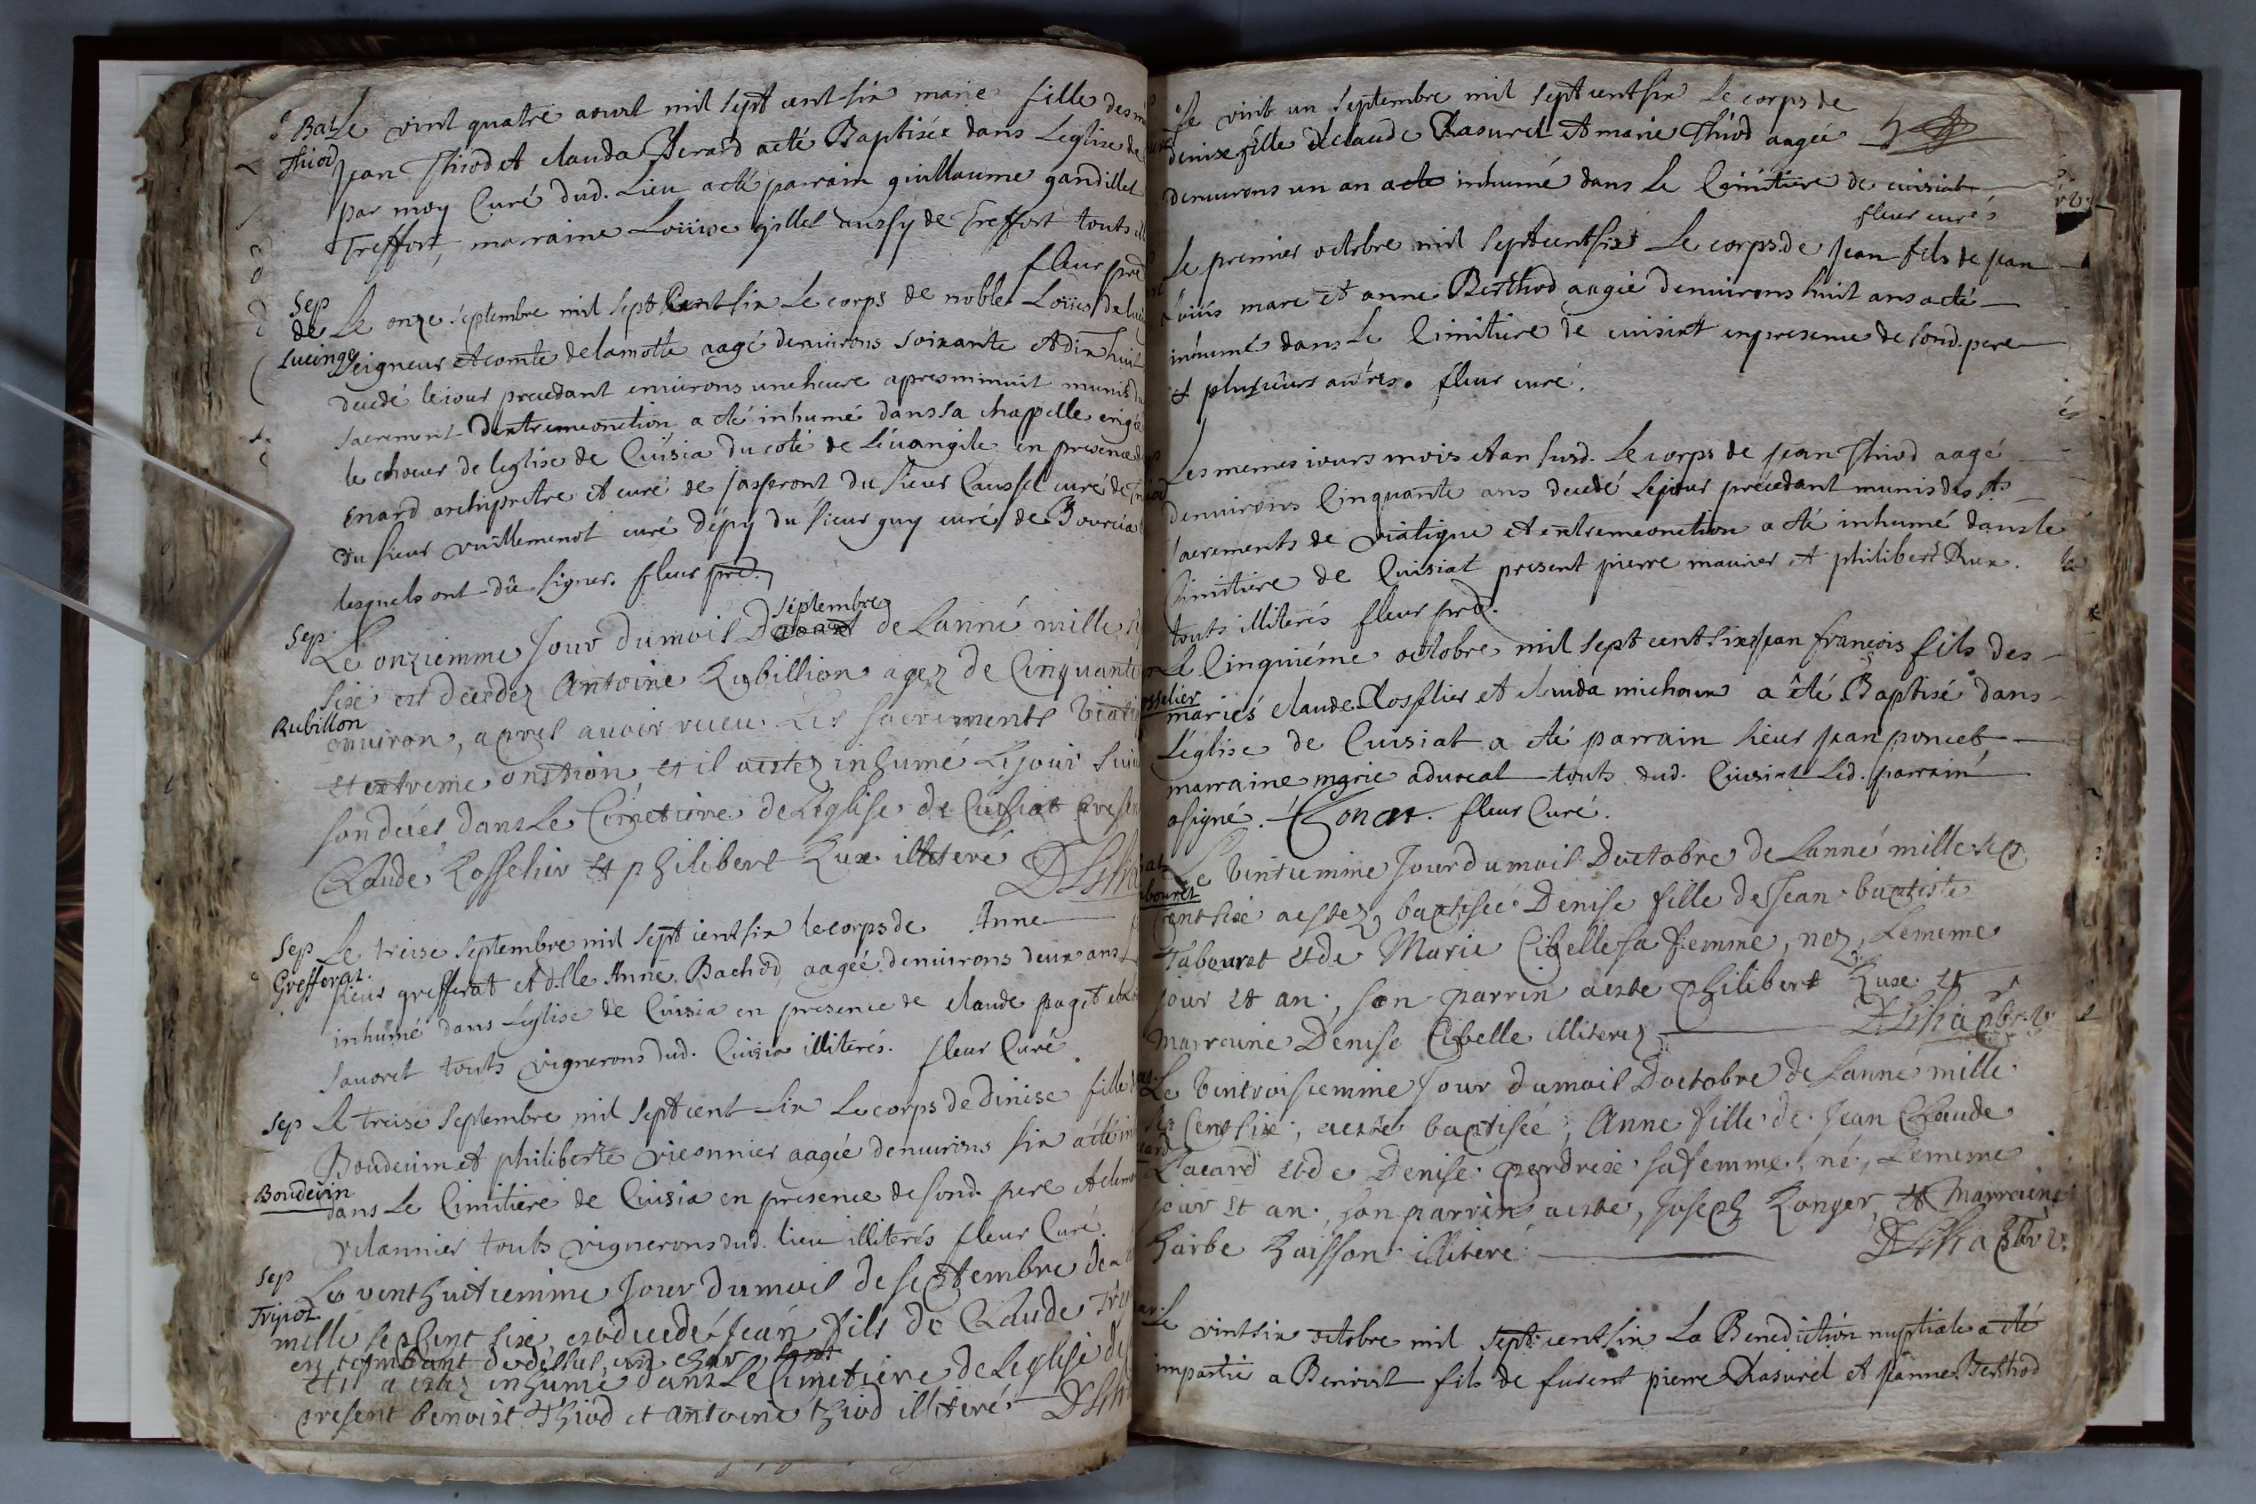 Bat Le vint quatre aoust mil sept cent six marie fille des
Thiod Jean Thiod et clauda Herard a eté Baptisée dans Leglise de
par moy Curé dud. Lieu a eté parrain guillaume gandillet
Treffort, marraine Loüise gillet aussy de Treffort touts
fleur pre
Sep
de Le onze septembre mil sept Cent six Le corps de noble Loüis de
Lucinge Seigneur et comte de la motte aagé denuirons soixante et dix huit
decedé le iour precedant enuirons une heure apres minuit munis du
sacrement d'extremeonction a eté inhumé dans sa chappelle erigée
le choeur de leglise de Cuisia du coté de L'éuangile en presence
Enard archiprétre et curé de jasseront du sieur Caussel curé de
du sieur vuillemenot curé dépy du sieur guy curé de Bourcia
lesquels ont dû signer. fleur pre.
septembre
Sep Le onziemme Jour du mois Daoust de Lanné mille
sixe est decedez Antoine Rubillion agez de Cinquante
Rubillon
enuiron, apres auoir receu Les sacrements Viati
et extreme onstion et il a estez inhumé Lejour
son decés dans Le Cimetiere de Leglise de Cuisiat Presen
Claude Rosselier et philibert Ruxe illiteré
Sep Le treise septembre mil sept cent six le corps de Anne
Grefferat.
sieur grefferat et d.lle Anne Bachod, aagée denuirons deux ans
inhumé dans Léglise de Cuisia en presence de claude paget et
sauoret touts vignerons dud. Cuisia illiterés. fleur Curé
Sep Le treise septembre mil sept cent six Le corps de dinise fille
Boudeuin et philiberte vieonnier aagée denuirons six a eté in
Boudevin
dans Le Cimitiere de Cuisia en presence de sond. pere et
vilannier touts vignerons dud. lieu illiterés fleur Curé.
Sep Le vent huitiemme Jour du mois de septembre de
Tripoz
mille sept Cent sixe est decedé Jean fils de Claude
en tombant de dessus un char
et il a estez inhumé dans Le Cimetiere de Leglise de
present benoist Thiod et antoine thiod illiteré
Le vint un septembre mil sept cent six Le corps de
denise fille de claude Rasurel et marie Thiod aagée
denuirons un an a eté inhumé dans Le Cimitiere de cuisiat
fleur curé
Le premier octobre mil sept cent six Le corps de jean fils de jean
Loüis marc et anne Berthod aagé denuirons huit ans a eté
inhumé dans Le Cimitiere de cuisiat en presence de sond. pere
et plusieurs autres. fleur curé.
Les memes iours mois et an susd. Le corps de jean Thiod aagé
denuirons Cinquante ans decedé Lejour précédant munis des sts
sacrements de viatique et extremeonction a eté inhumé dans le
Cimitiere de Cuisiat present pierre maurier et philibert Rux.
touts illiterés fleur pre.
Le Cinquiéme octobre mil sept cent six jean françois fils des
mariés claude Rosselier et clauda michoux a été Baptisé dans
L'église de Cuisiat a eté parrain sieur jean poncet
marraine marie aduocat touts dud. Cuisiat Led. parrain
a signé. fleur Curé.
Le Vintiemme Jour du mois Doctobre de Lanné mille sep
Cent sixe a estez baptisée Denise fille de Jean baptiste
Tabouret et de Marie Cibelle sa femme, nez, Lememe
jour et an, son parrin a este philibert Ruxe et
marraine Denise Cibelle illiterez
Le Vintroisiemme Jour du mois Doctobre de Lanné mille
sep Cent sixe, a este baptisée, Anne fille de Jean Claude
et de Denise perdrixe sa femme, né, Lememe
jour et an, son parrin a este, Joseph Ronger, et marraine
barbe Raisson illiteré
Le vint six octobre mil sept cent six La Benediction nuptiale a eté
impartie a Benoist fils de fusent pierre Rasurel et jeanne Berthod